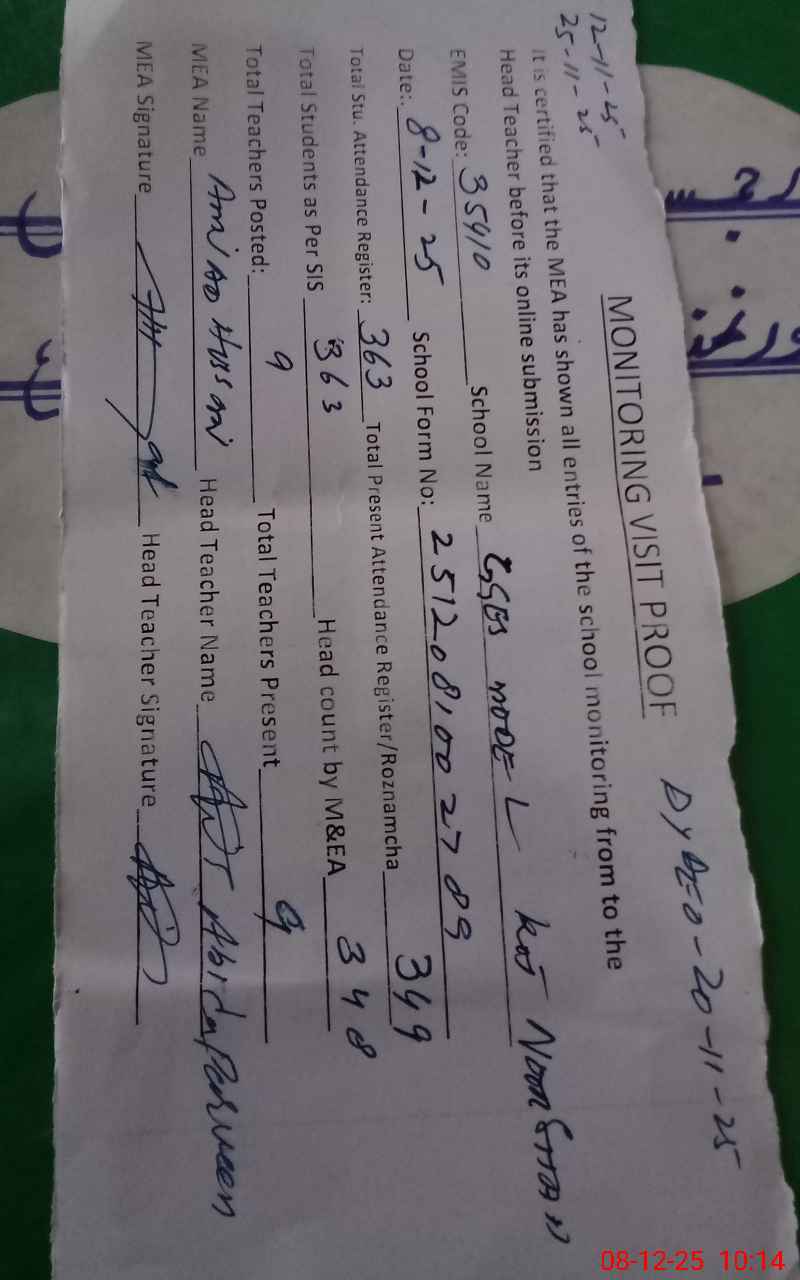 12-11-25
25-11-25
DyDEO-20-11-25
MONITORING VISIT PROOF
It is certified that the MEA has shown all entries of the school monitoring from to the
Head Teacher before its online submission
EMIS Code: 35910 School Name GGES MODEL kot Noor Shah
Date:. 8-12-25 School Form No: 2512081002789
Total Stu. Attendance Register: 363 Total Present Attendance Register/Roznamcha 349
Total Students as Per SIS 363 Head count by M&EA 348
Total Teachers Posted: 9 Total Teachers Present 9
MEA Name Amjad Hussain Head Teacher Name Abida Parveen
MEA Signature Head Teacher Signature
08-12-25 10:14